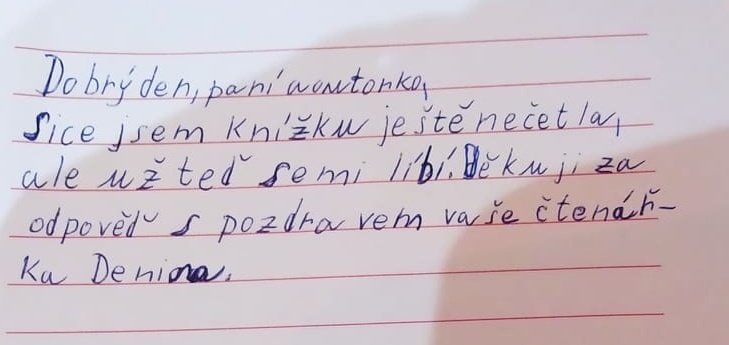 Dobrý den, paní auutorko,
Sice jsem knížku ještě nečetla,
ale už teď se mi líbí. Děkuji za
odpověď s pozdravem vaše čtenář-
ka